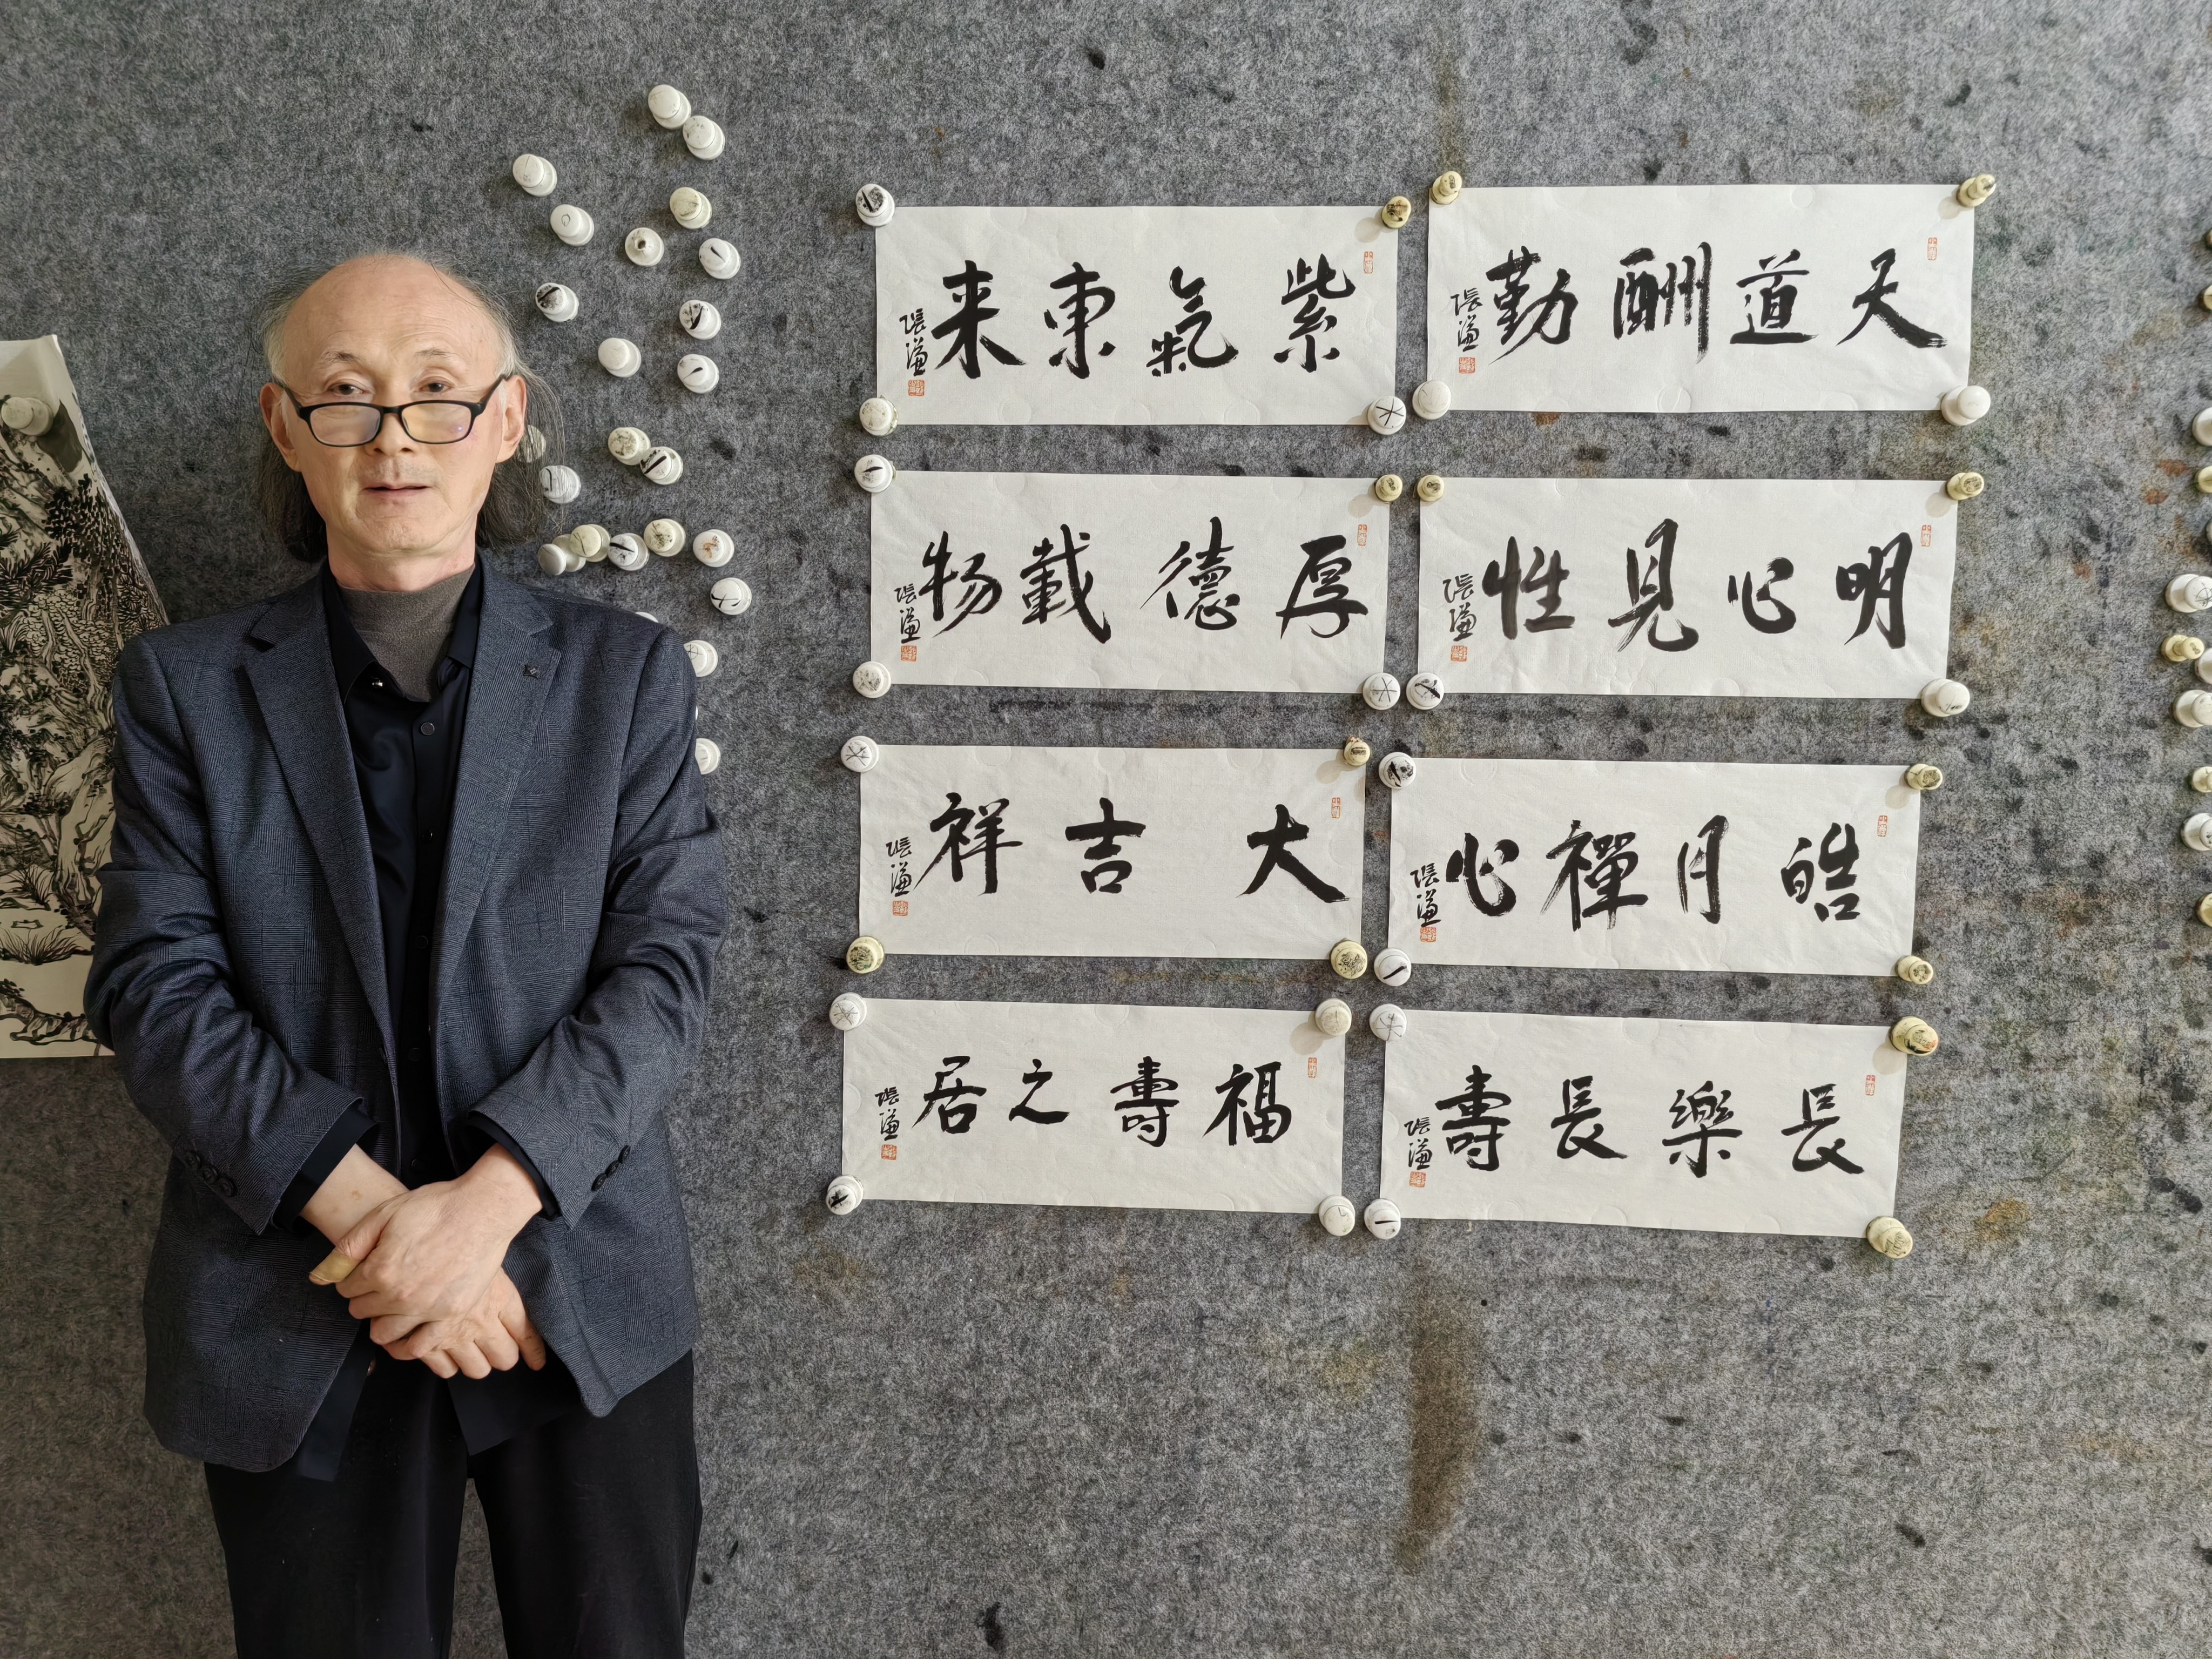 紫氣東来
張謙
天道酬勤
張謙
厚德載物
張謙
明心見性
張謙
大吉祥
張謙
皓月禪心
張謙
福壽之居
張謙
長樂長壽
張謙